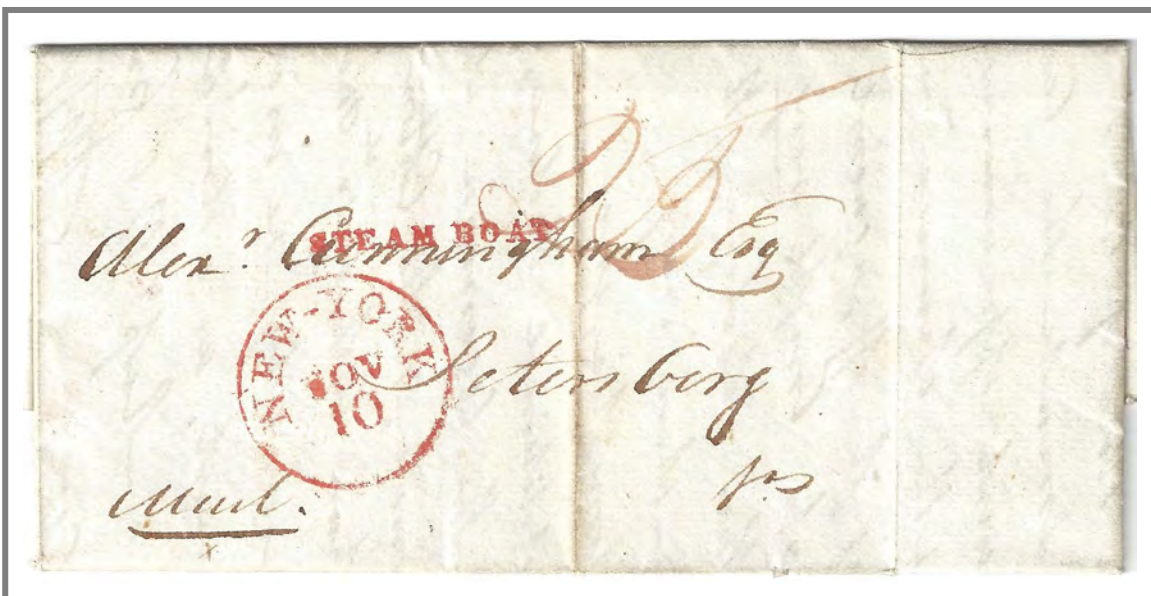 25
STEAM BOAT
Alexr. Cunningham Esq
NEW-YORK
NOV
10
Petersburg
Mail.
x